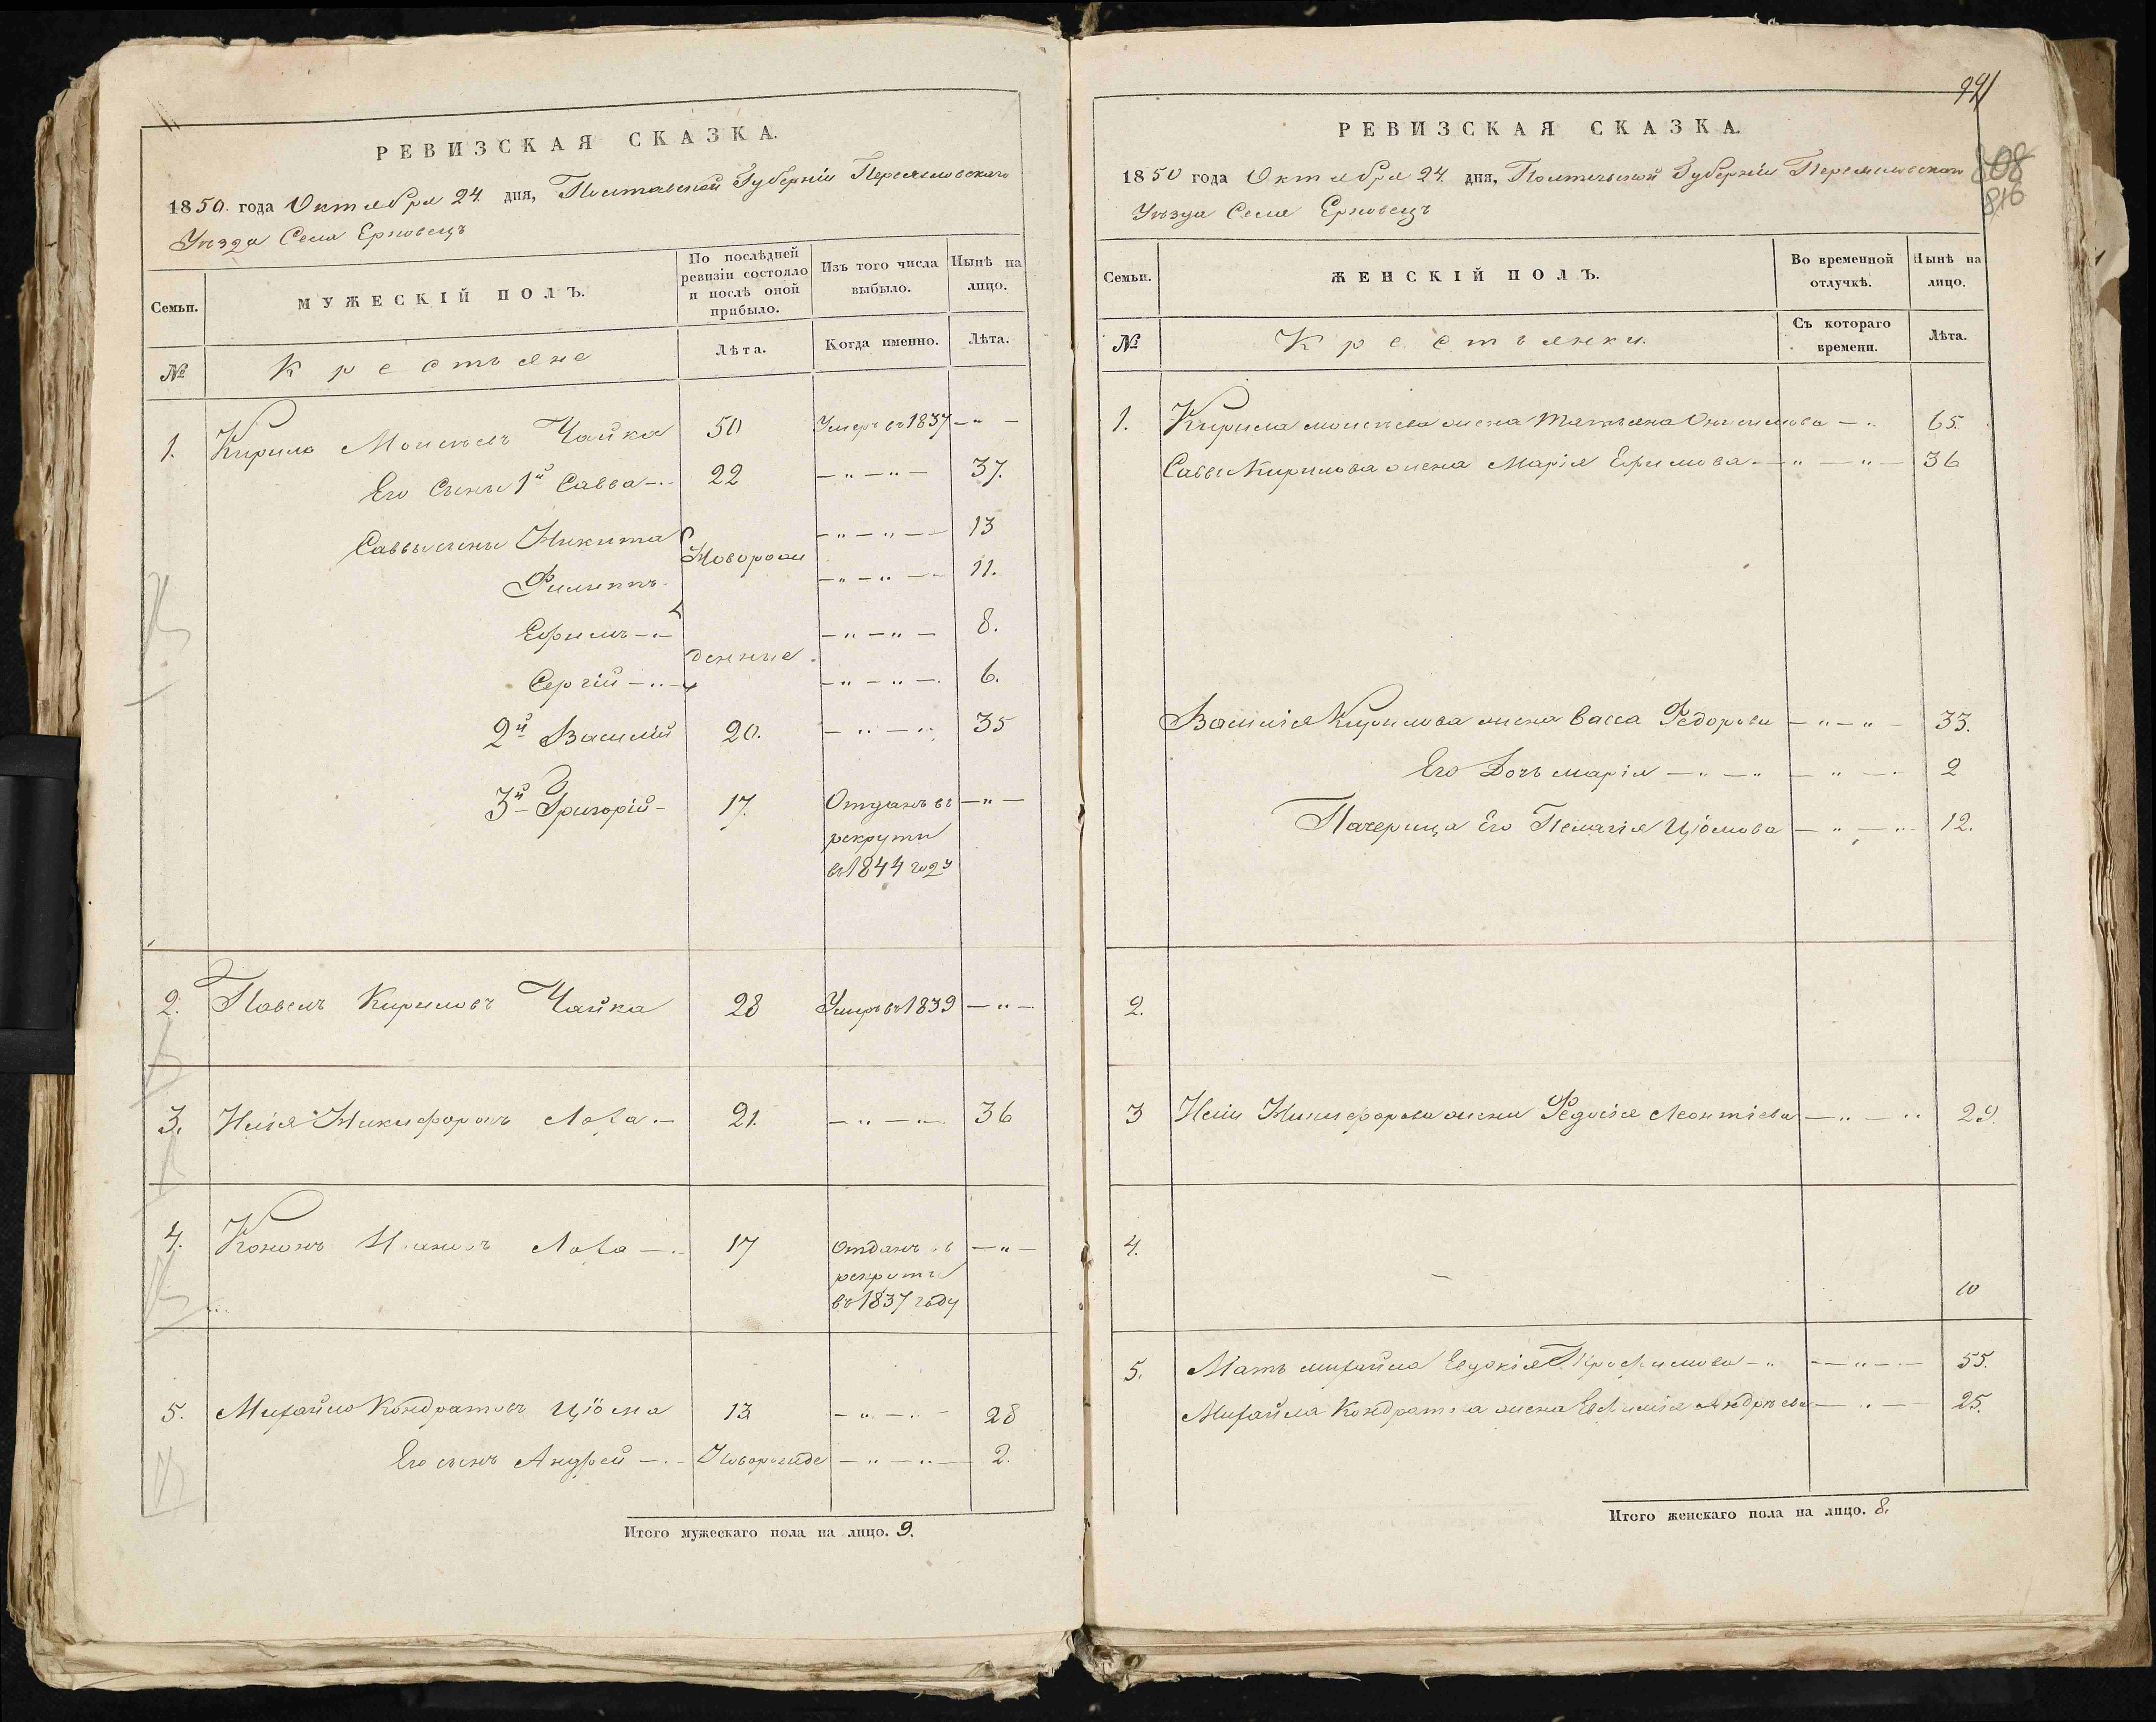 РЕВИЗСКАЯ СКАЗКА.
1850. года Октября 24. дня, Полтавской Губерніи Переяславскаго
Уѣзда Села Ерковецъ
Семьи.
МУЖЕСКІЙ ПОЛЪ.
По послѣдней ревизіи состояло и послѣ оной прибыло.
Изъ того числа выбыло.
Нынѣ на лицо.
№
Крестьяне
Лѣта.
Когда именно.
Лѣта.
1. Кирило Моисѣевъ Чайка 50 Умеръ въ 1837 — " —
Его сыны 1й Савва — .. 22 — " — " — 37.
Саввы сыны Никита Новорож — " — " — 13
Филиппъ — " — " — 11.
Ефимъ — " — денные — " — " — 8.
Сергій — .. — — " — " — 6.
2й Василій 20. — " — " 35
3й Григорій — 17. Отданъ въ — " —
рекруты
въ 1844 году
2. Павелъ Кириловъ Чайка 28 Умеръ въ 1839 — " —
3. Илія Никифоровъ 21. — " — " — 36
4. Кононъ 17 Отданъ въ — " —
рекруты
въ 1837 году
5. Михайло Кондратовъ Цёма 13 — " — " — 28
Его сынъ Андрей — . — Новорожде — " — " — 2.
Итого мужескаго пола на лицо. 9.
991
808
816
РЕВИЗСКАЯ СКАЗКА.
1850 года Октября 24. дня, Полтавской Губерніи Переяславскаго
Уѣзда Села Ерковецъ
Семьи.
ЖЕНСКІЙ ПОЛЪ.
Во временной отлучкѣ.
Нынѣ на лицо.
№
Крестьянки.
Съ котораго времени.
Лѣта.
1. Кирила Моисѣева жена Татьяна Онисимова — " 65.
Саввы Кирилова жена Марія Ефимова — " — " — 36
Василія Кирилова жена Васса Федорова — " — " — 33.
Его Дочь Марія — " — " — " — 2
Пачерица Его Пелагія Цёмова — " — " 12.
2.
3 Иліи Никифорова жена Федосія Леонтіева — " — " 29.
4.
10
5. Мать Михайла Евдокія Трофимова — " — " — 55.
Михайла Кондратова жена Евфимія Андрѣева — " — 25.
Итого женскаго пола на лицо. 8.